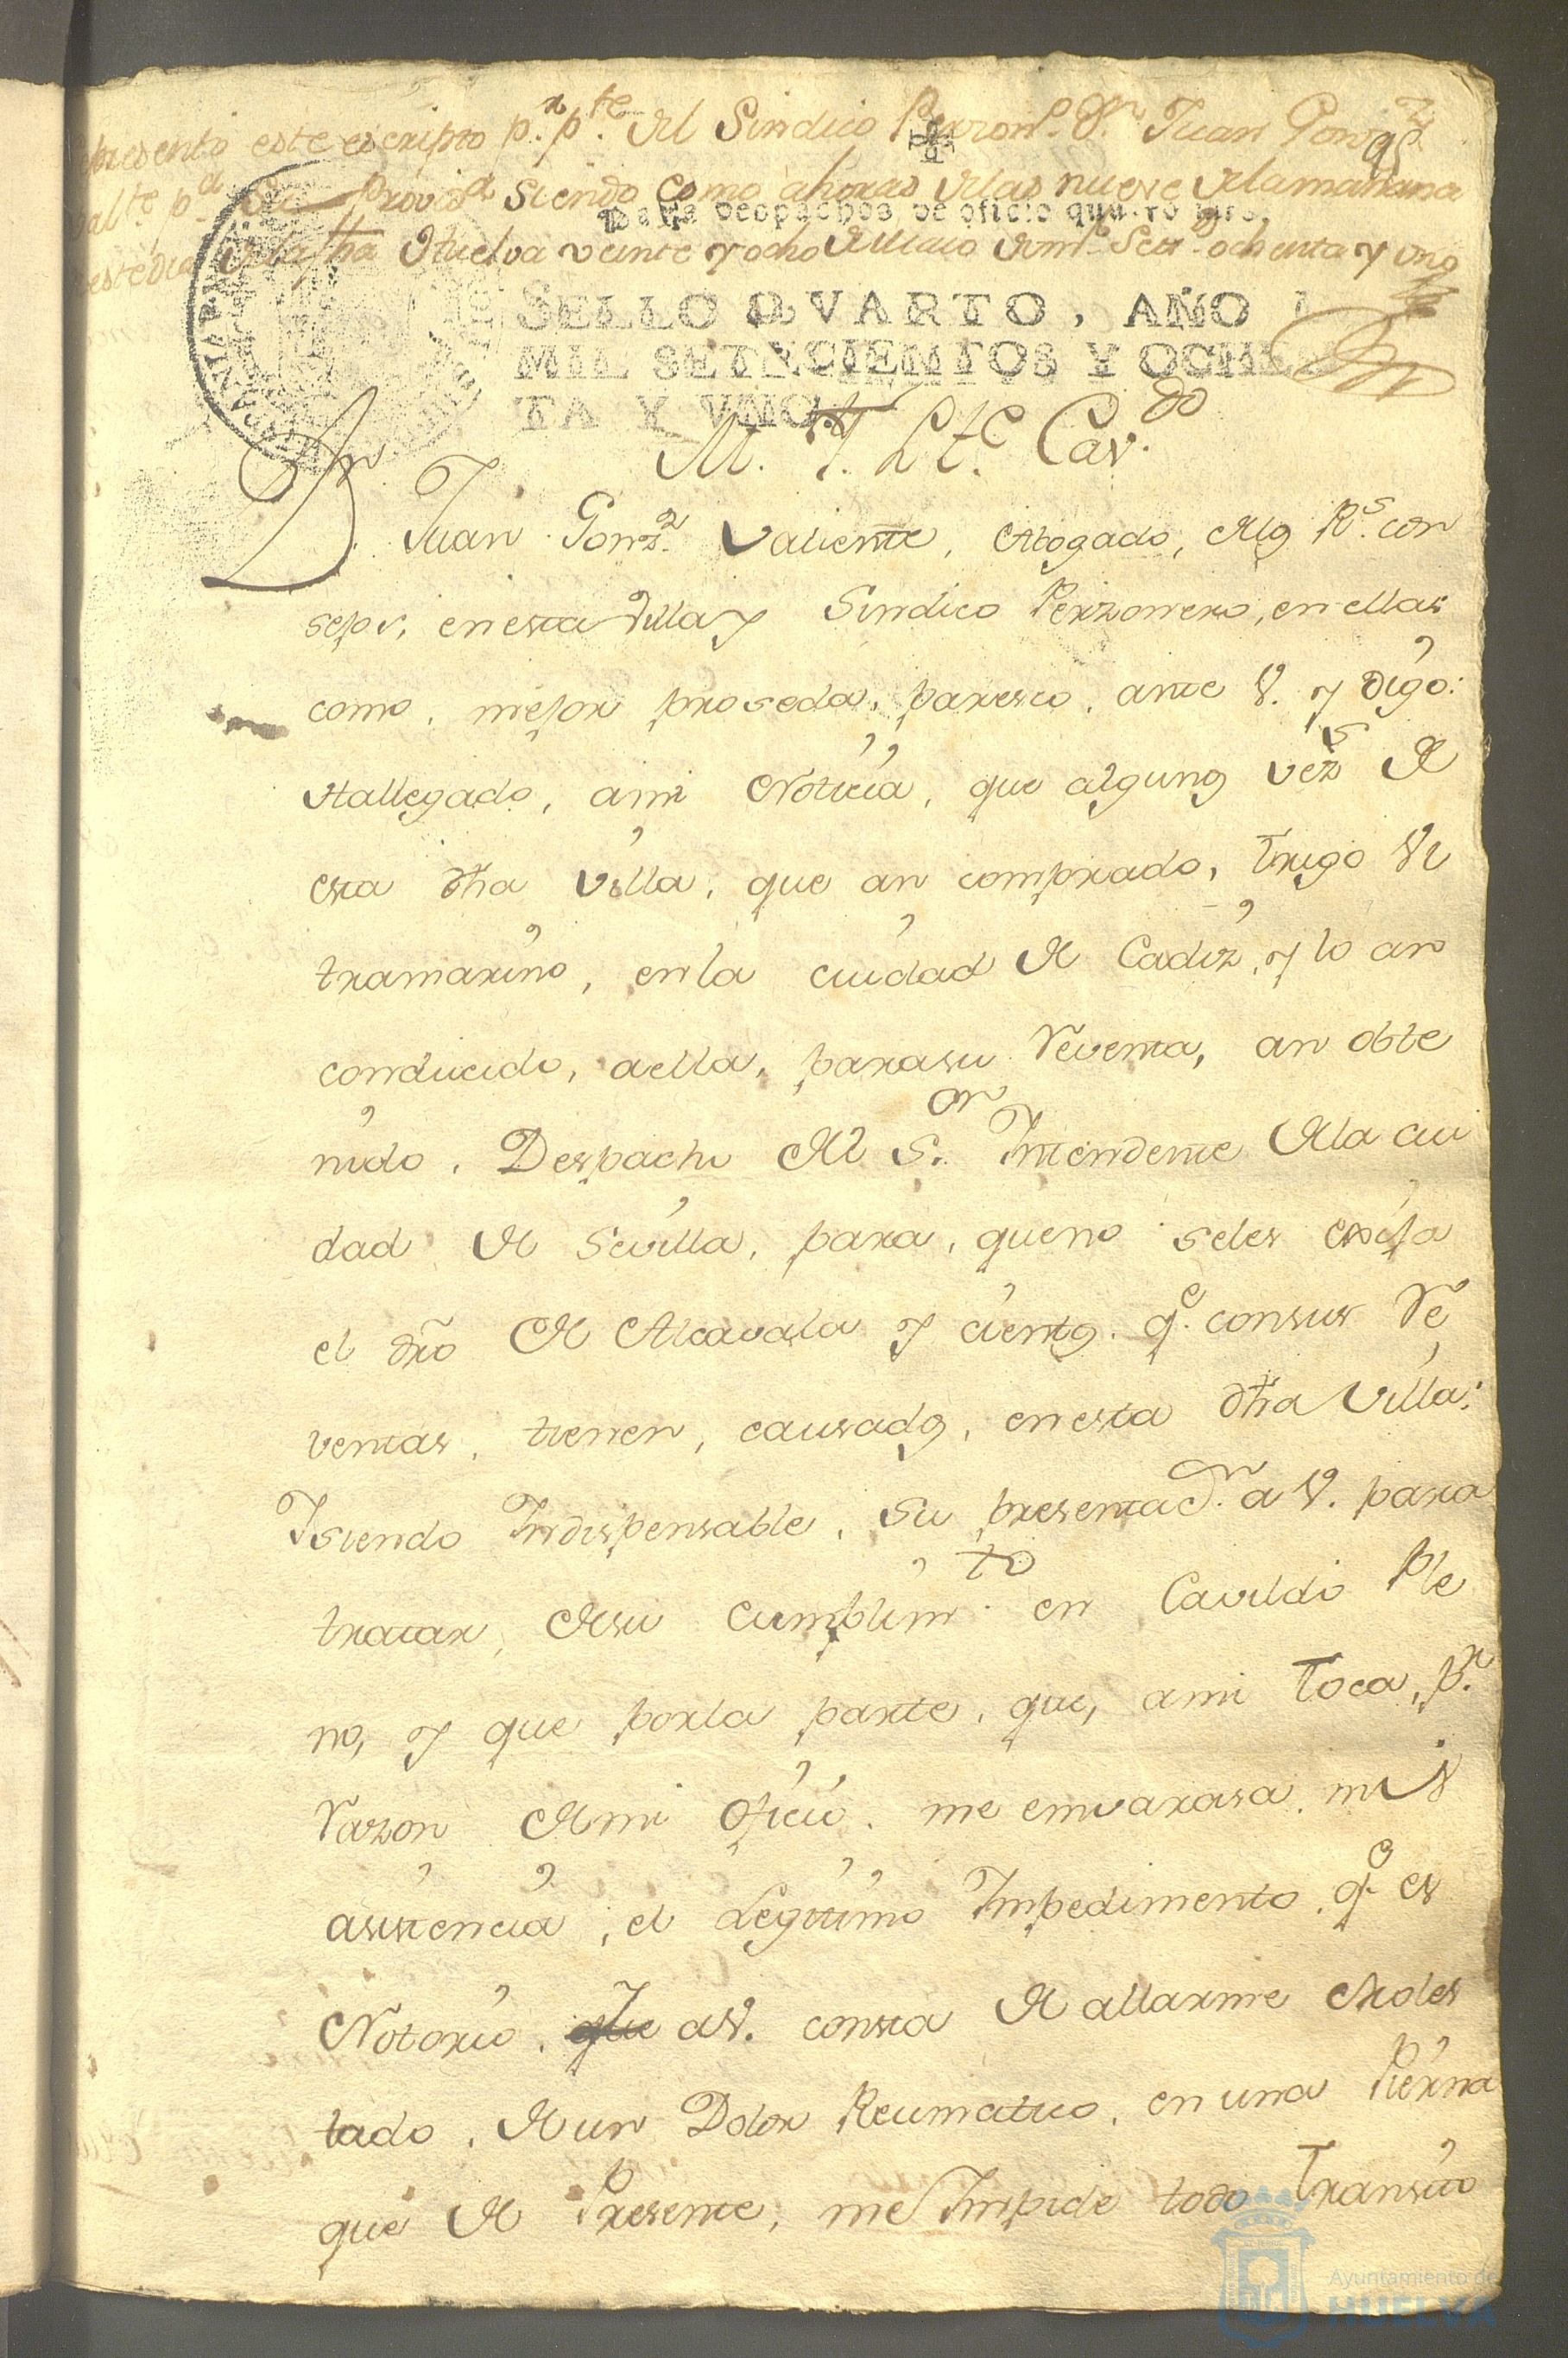 presento este escripto p.r p.te del Sindico Perzon.o D.n Juan Gonz.z
val.te p.a su Provid.a siendo como ahoras delas nueve dela mañana
este dia dela fha Huelva veinte y ocho de Maio de mil Set.s ochenta y uno
Para despachos de oficio quatro mrs.
SELLO QVARTO, AÑO
MIL SETECIENTOS Y OCHEN
TA Y VNO.
M. I. Lt.e Cav.do
D.n Juan Gonz.z Valiente, Abogado, delos R.s con
sejos, enesta Villa y Sindico Perzonero, en ellas
como, mejor proseda, paresco, ante V. y Digo:
Hallegado, ami Noticia, que algunos vez.s de
esta dha Villa, que an comprado, trigo Vl
tramarino, enla ciudad de Cadiz, y lo an
conducido, aella, parasu Reventa, an obte
nido, Despacho del S.or Intendente dela ciu
dad de Sevilla, para, queno seles exija
el dro de Alcavala y cientos. q.e consus Re
ventas, tienen, causados, enesta dha Villa:
Isiendo Indispensable, su presentac.on a V. para
tratar, desu cumplim.to en Cavildo Ple
no, y que porla parte, que, ami toca, p.r
Razon demi oficio, me emvarasa, mi
asistencia, el Legitimo Impedimento, q.e es
Notorio, que aV. consta de allarme Moles
tado, de un Dolor Reumatico, en una Pierna
que de Presente, me Impide todo Transito
Ayuntamiento de
HUELVA